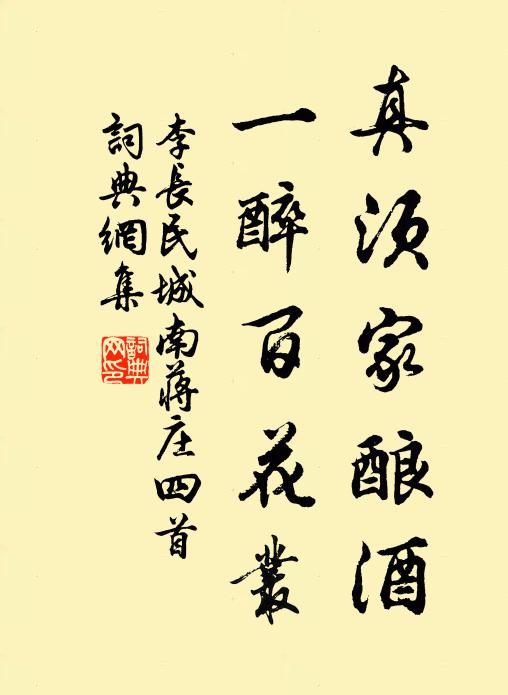 真须家酿酒
一醉百花叢
李長民城南蔣庄四首
詞典網集
詞典
网印